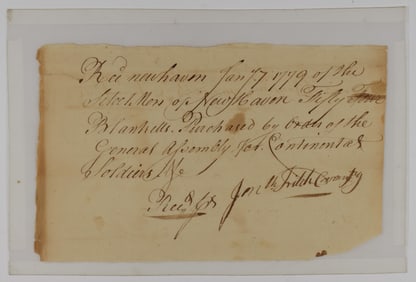 Rec'd newhaven Jan'y 7 1779 of the
Selectmen of New Haven Fifty Four
Blanketts Purchased by Order of the
General Assembly for Continental
Soldiers &c
Rec'd
Jon'th Fitch Com'sy